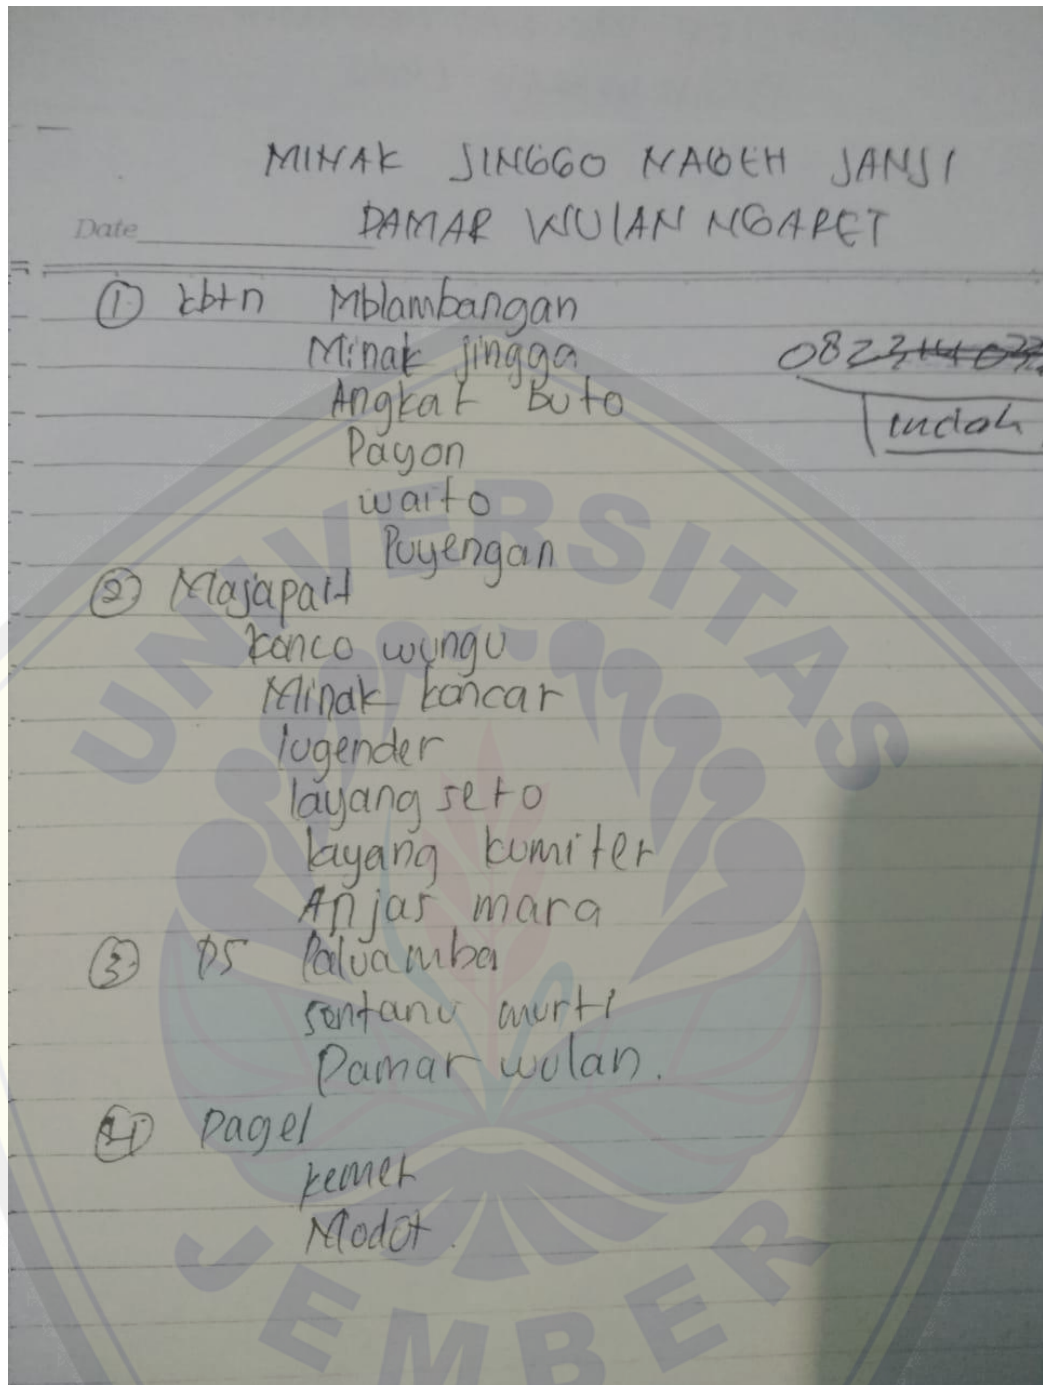 MINAK JINGGO NAGEH JANJI
DAMAR WULAN NGARET
Date
① kbtn Mblambangan
Minak jingga
Angkat Buto
Payon
waito
Puyengan
② Majapait
konco wungu
Minak koncar
lugender
layang seto
layang kumiter
Anjas mara
③ DS Paluamba
sontanu murti
Damar wulan.
④ Pagel
kemet
Modot.
indah
UNIVERSITAS
JEMBER